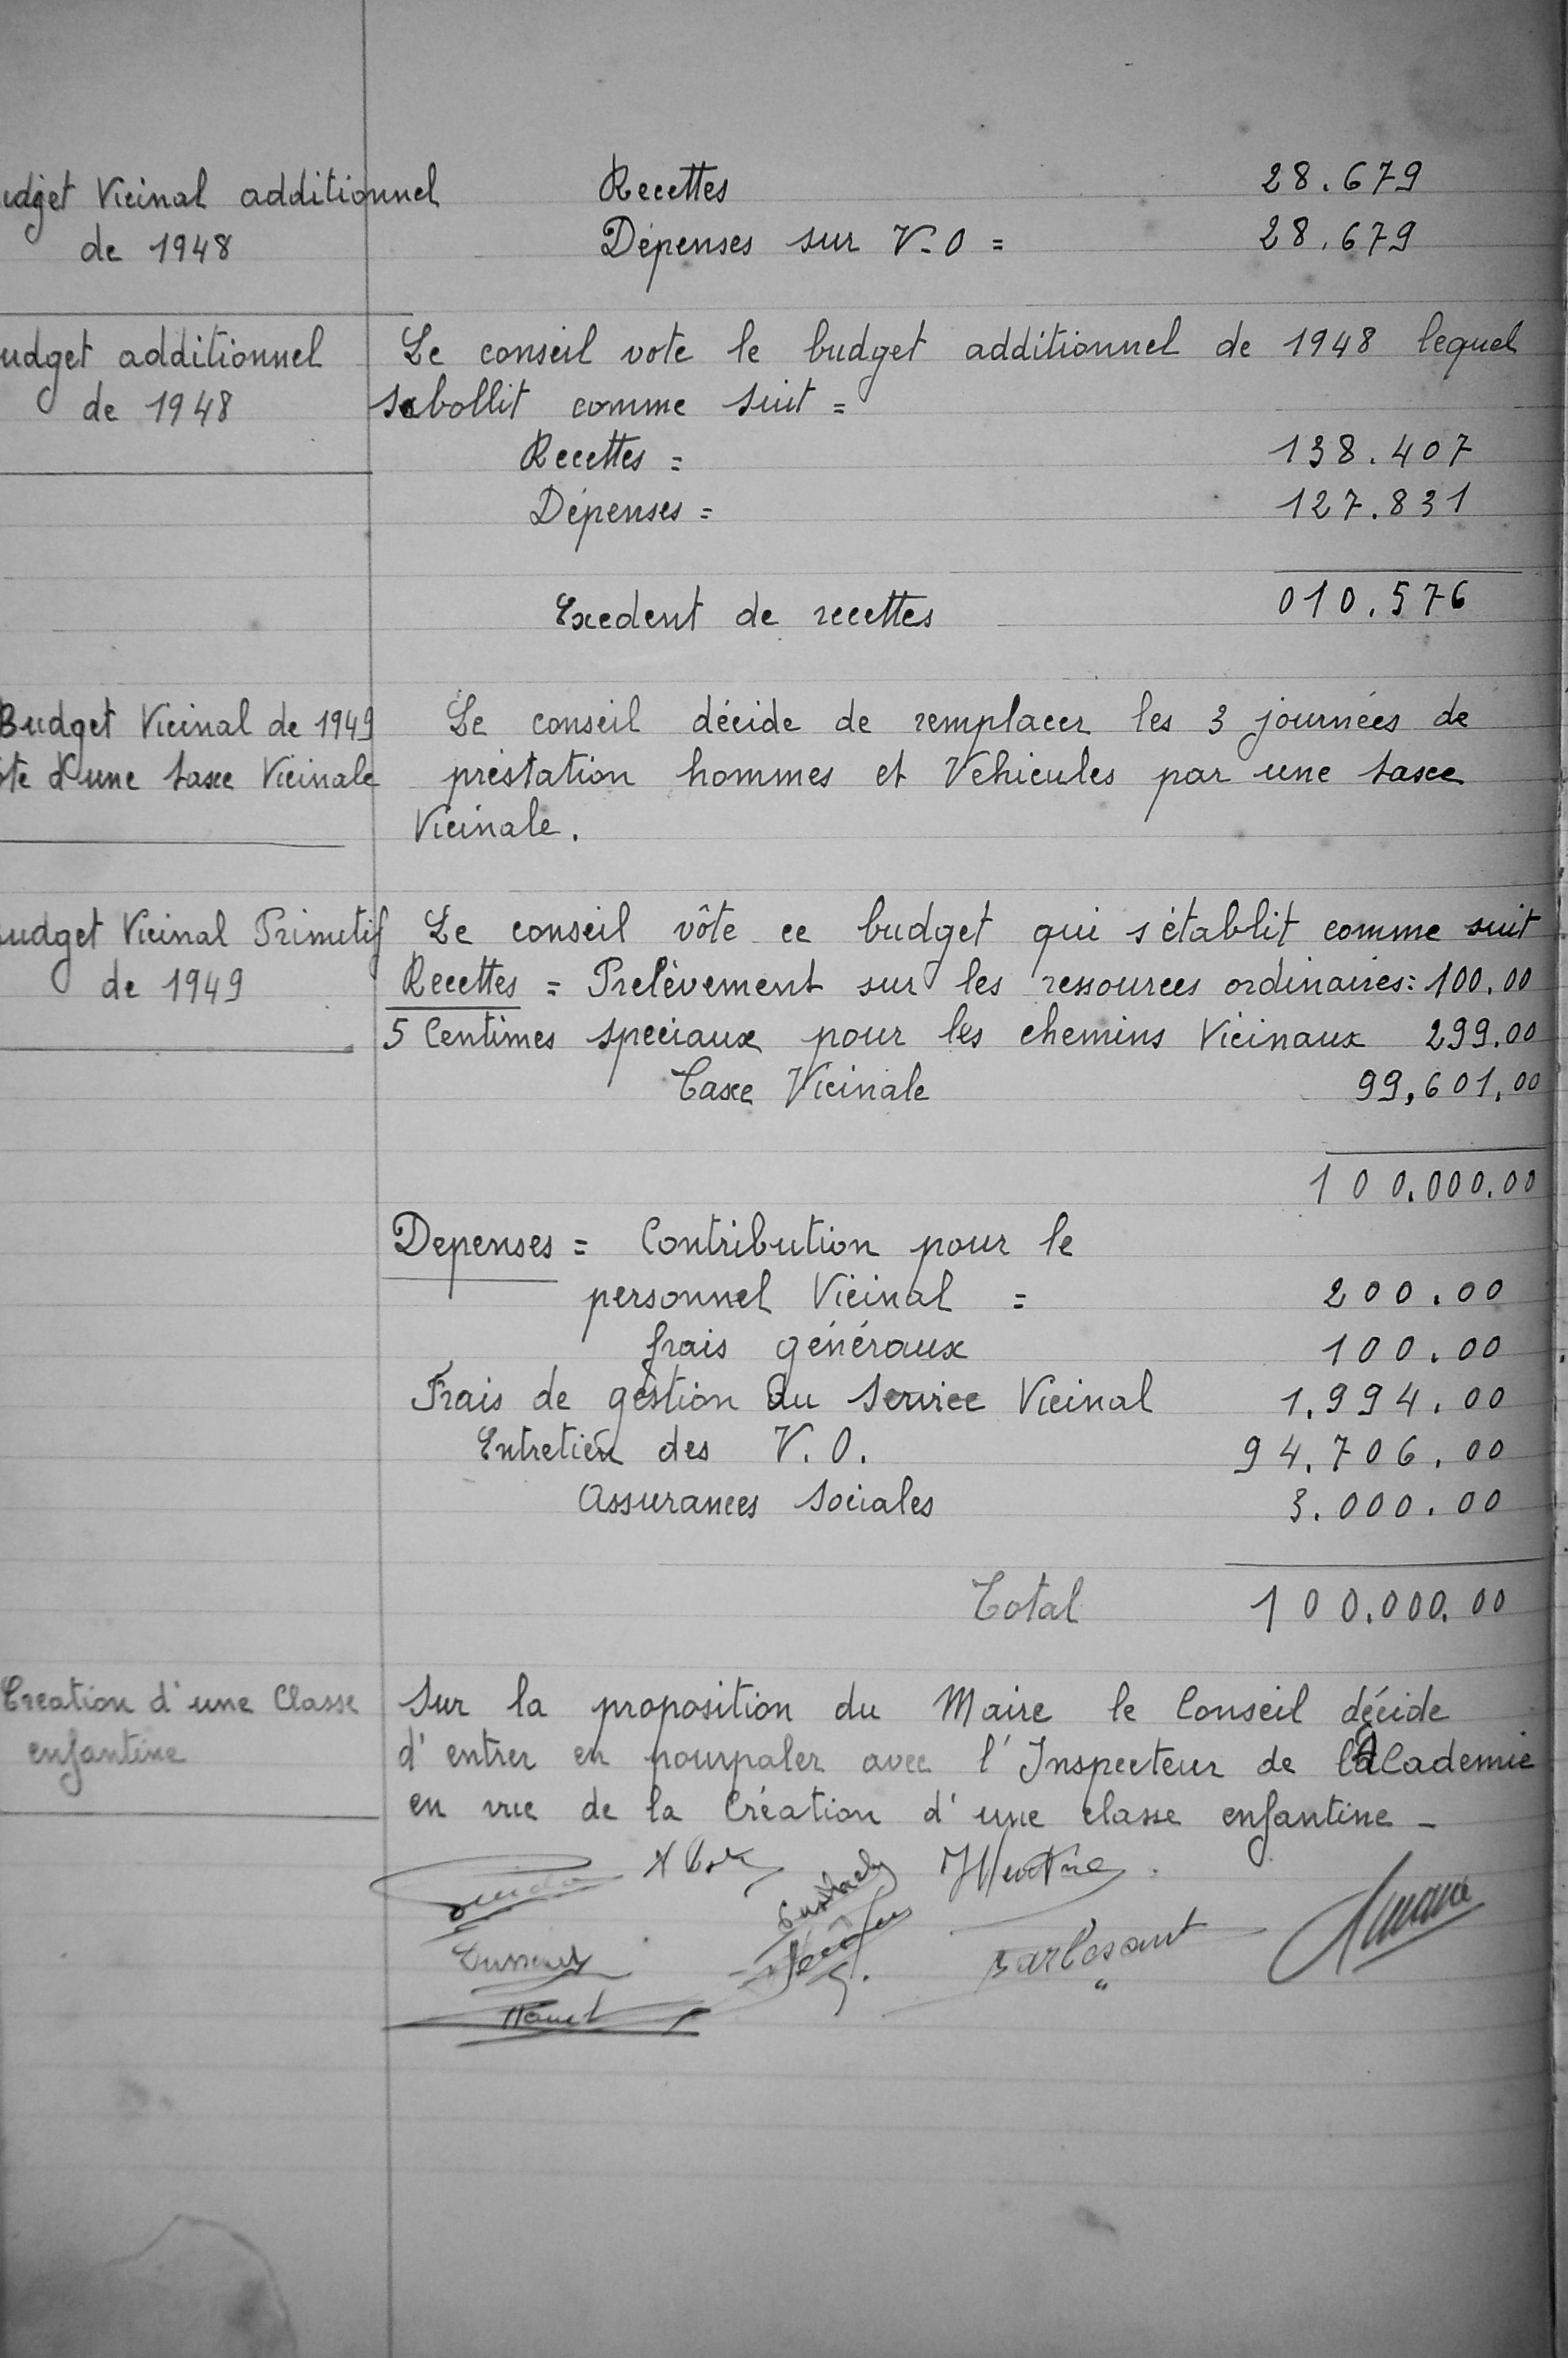 udget Vicinal additionnel
de 1948
Recettes 28.679
Dépenses sur V.O = 28.679
udget additionnel
de 1948
Le conseil vote le budget additionnel de 1948 lequel
sabollit comme suit =
Recettes = 138.407
Dépenses = 127.831
Excedent de recettes 010.576
Budget Vicinal de 1949
te d'une taxe Vicinale
Le conseil décide de remplacer les 3 journées de
prestation hommes et Vehicules par une taxe
Vicinale.
udget Vicinal Primitif
de 1949
Le conseil vôte ce budget qui s'établit comme suit
Recettes = Prelèvement sur les ressources ordinaires: 100.00
5 Centimes speciaux pour les chemins Vicinaux 299.00
Taxe Vicinale 99,601,00
100.000.00
Depenses = Contribution pour le
personnel Vicinal = 200.00
frais généraux 100.00
Frais de gestion du Service Vicinal 1.994.00
Entretien des V.O. 94.706.00
Assurances Sociales 3.000.00
Total 100.000.00
Creation d'une Classe
enfantine
Sur la proposition du Maire le Conseil décide
d'entrer en pourpaler avec l'Inspecteur de l'Academie
en vue de la Création d'une classe enfantine -
Barbosant